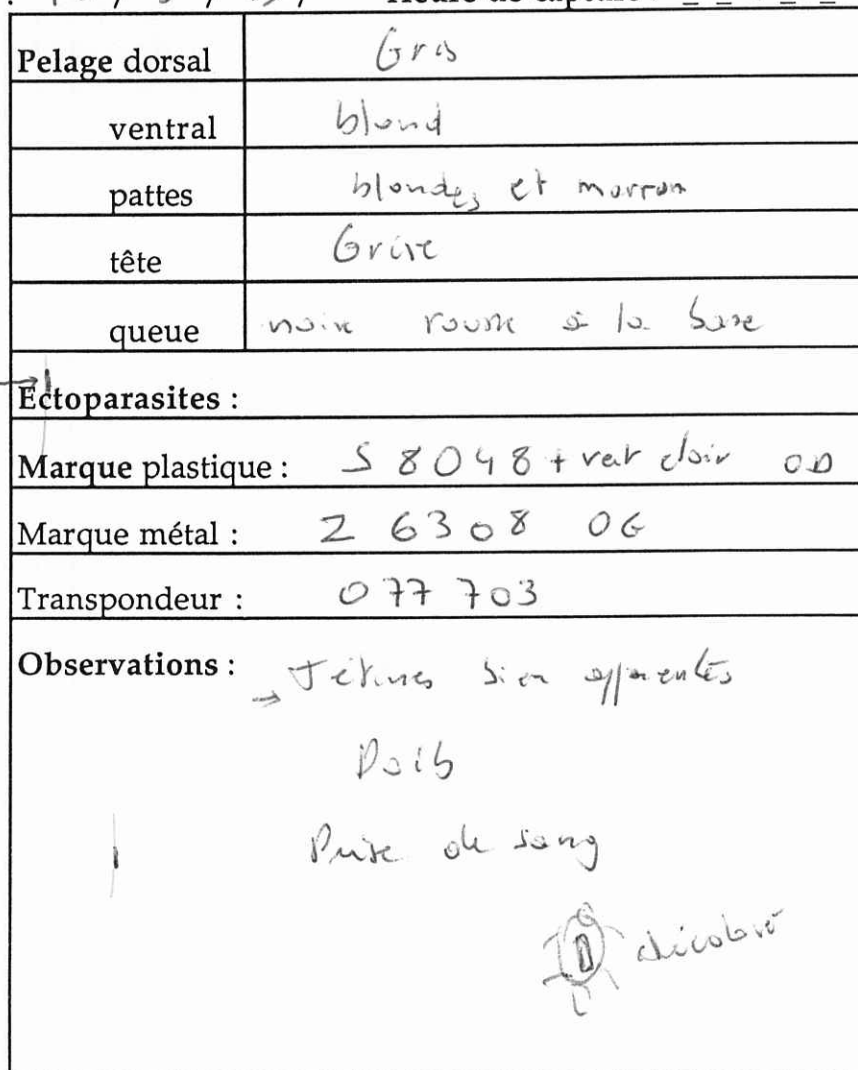 Pelage dorsal Gris
ventral blond
pattes blondes et marron
tête Grise
queue noire rousse à la base
Ectoparasites :
Marque plastique : S 8048 + vert clair OD
Marque métal : Z 6308 OG
Transpondeur : 077 703
Observations : → Tétines bien apparentes
Poils
Prise de sang
décoloré